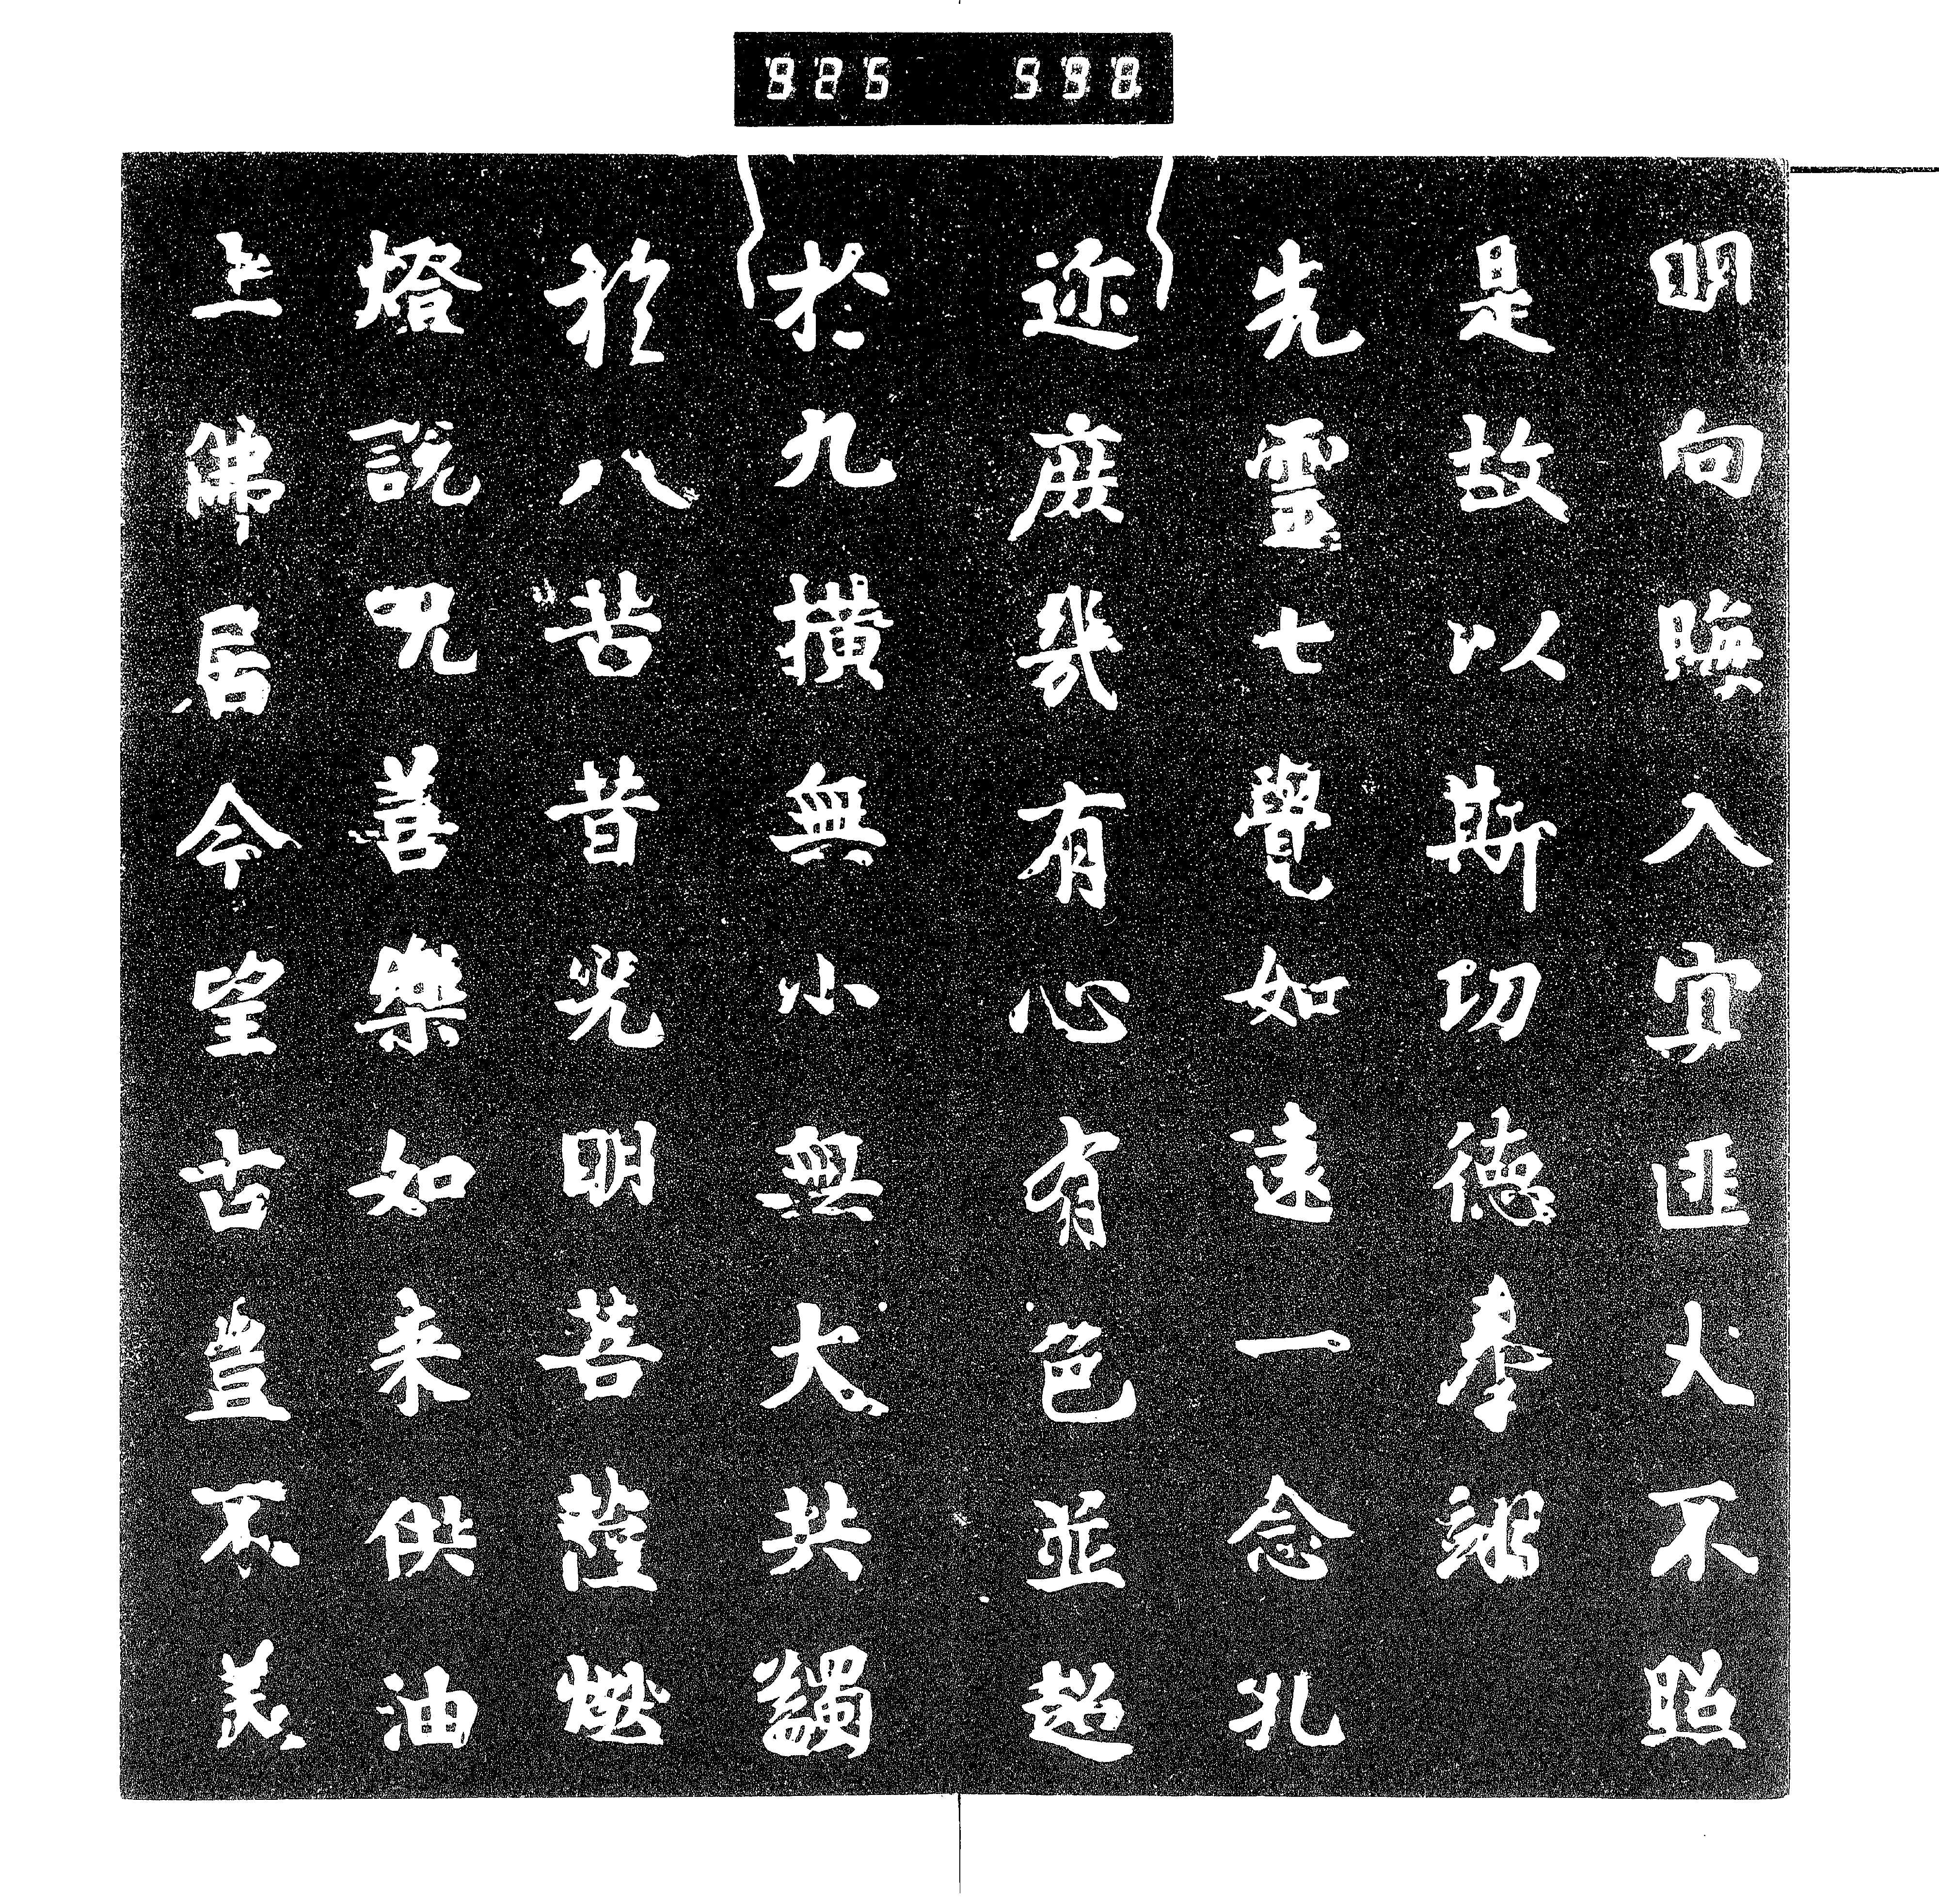 925 598
明向晦入冥匪火不照
是故以斯功德奉翊
先靈七覺如遠一念孔
迩庶幾有心有色並超
於九横無小無大共蠲
於八苦昔光明菩薩燃
燈說呪善樂如来供油
上佛居今望古豈不美